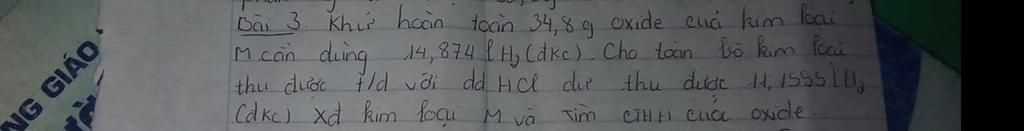 Bài 3. Khử hoàn toàn 34,8 g oxide cuả kim loại
M cần dùng 14,874 l H₂ (đkc). Cho toàn bộ kim loại
thu được t/d với dd HCl dư thu được 11,1555 l H₂
(đkc) Xđ kim loại M và Tìm CTHH cuả oxide.
NG GIÁO